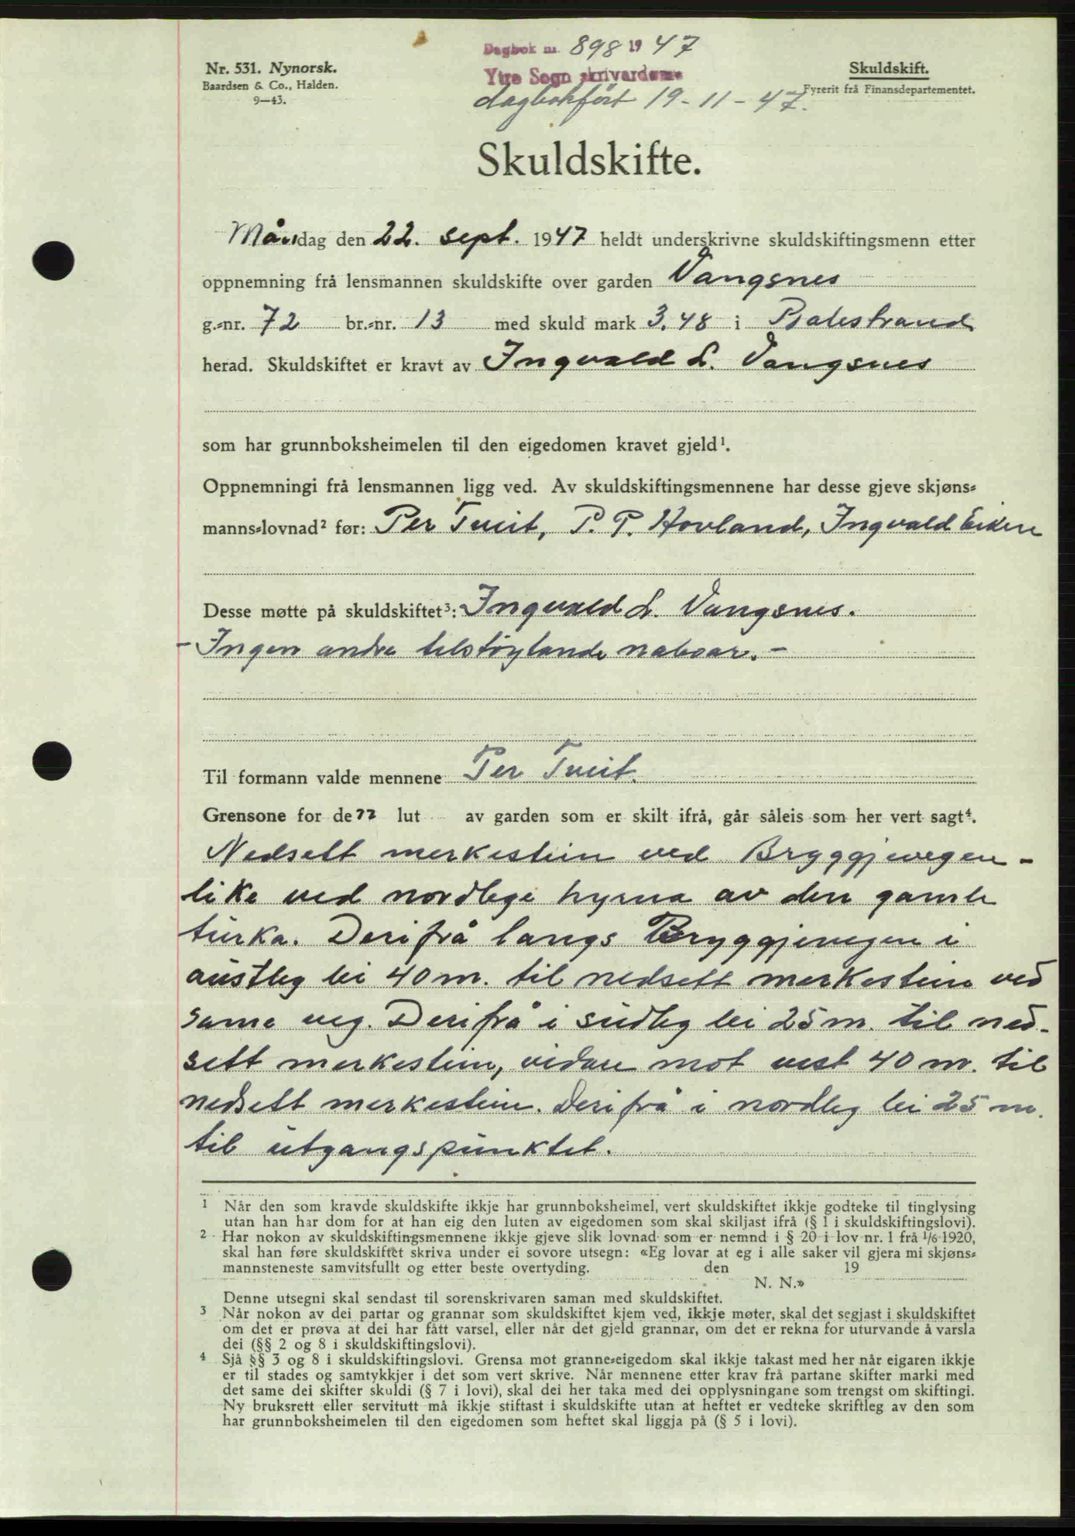 Dagbok nr. 898 1947
Nr. 531. Nynorsk.
Baardsen & Co., Halden.
9—43.
Ytre Sogn skrivardøme
dagbokført 19-11-47.
Skuldskift.
Fyrerit frå Finansdepartementet.
Skuldskifte.
Måndag den 22. sept. 1947 heldt underskrivne skuldskiftingsmenn etter
oppnemning frå lensmannen skuldskifte over garden Vangsnes
g.-nr. 72 br.-nr. 13 med skuld mark 3,48 i Balestrand
herad. Skuldskiftet er kravt av Ingvald L. Vangsnes
som har grunnboksheimelen til den eigedomen kravet gjeld¹.
Oppnemningi frå lensmannen ligg ved. Av skuldskiftingsmennene har desse gjeve skjøns-
manns-lovnad² før: Per Tveit, P. P. Hovland, Ingvald Eiken
Desse møtte på skuldskiftet³: Ingvald L. Vangsnes.
- Ingen andre tilstøytande naboar. -
Til formann valde mennene Per Tveit.
Grensone for de 77 lut av garden som er skilt ifrå, går såleis som her vert sagt⁴.
Nedsett merkestein ved Bryggjevegen -
like ved nordlege hyrna av den gamle
turka. Derifrå langs Bryggjevegen i
austleg lei 40 m. til nedsett merkestein ved
same veg. Derifrå i sudleg lei 25 m. til ned-
sett merkestein, vidare mot vest 40 m. til
nedsett merkestein. Derifrå i nordleg lei 25 m.
til utgangspunktet.
¹ Når den som kravde skuldskifte ikkje har grunnboksheimel, vert skuldskiftet ikkje godteke til tinglysing
utan han har dom for at han eig den luten av eigedomen som skal skiljast ifrå (§ 1 i skuldskiftingslovi).
² Har nokon av skuldskiftingsmennene ikkje gjeve slik lovnad som er nemnd i § 20 i lov nr. 1 frå 1/6 1920,
skal han føre skuldskiftet skriva under ei sovore utsegn: «Eg lovar at eg i alle saker vil gjera mi skjøns-
mannsteneste samvitsfullt og etter beste overtyding. den 19
N. N.»
Denne utsegni skal sendast til sorenskrivaren saman med skuldskiftet.
³ Når nokon av dei partar og grannar som skuldskiftet kjem ved, ikkje møter, skal det segjast i skuldskiftet
om det er prøva at dei har fått varsel, eller når det gjeld grannar, om det er rekna for uturvande å varsla
dei (§§ 2 og 8 i skuldskiftingslovi).
⁴ Sjå §§ 3 og 8 i skuldskiftingslovi. Grensa mot granne-eigedom skal ikkje takast med her når eigaren ikkje
er til stades og samtykkjer i det som vert skrive. Når mennene etter krav frå partane skifter marki med
det same dei skifter skuldi (§ 7 i lovi), skal dei her taka med dei opplysningane som trengst om skiftingi.
Ny bruksrett eller servitutt må ikkje stiftast i skuldskifte utan at heftet er vedteke skriftleg av den som
har grunnboksheimelen til den eigedomen som heftet skal liggja på (§ 5 i lovi).